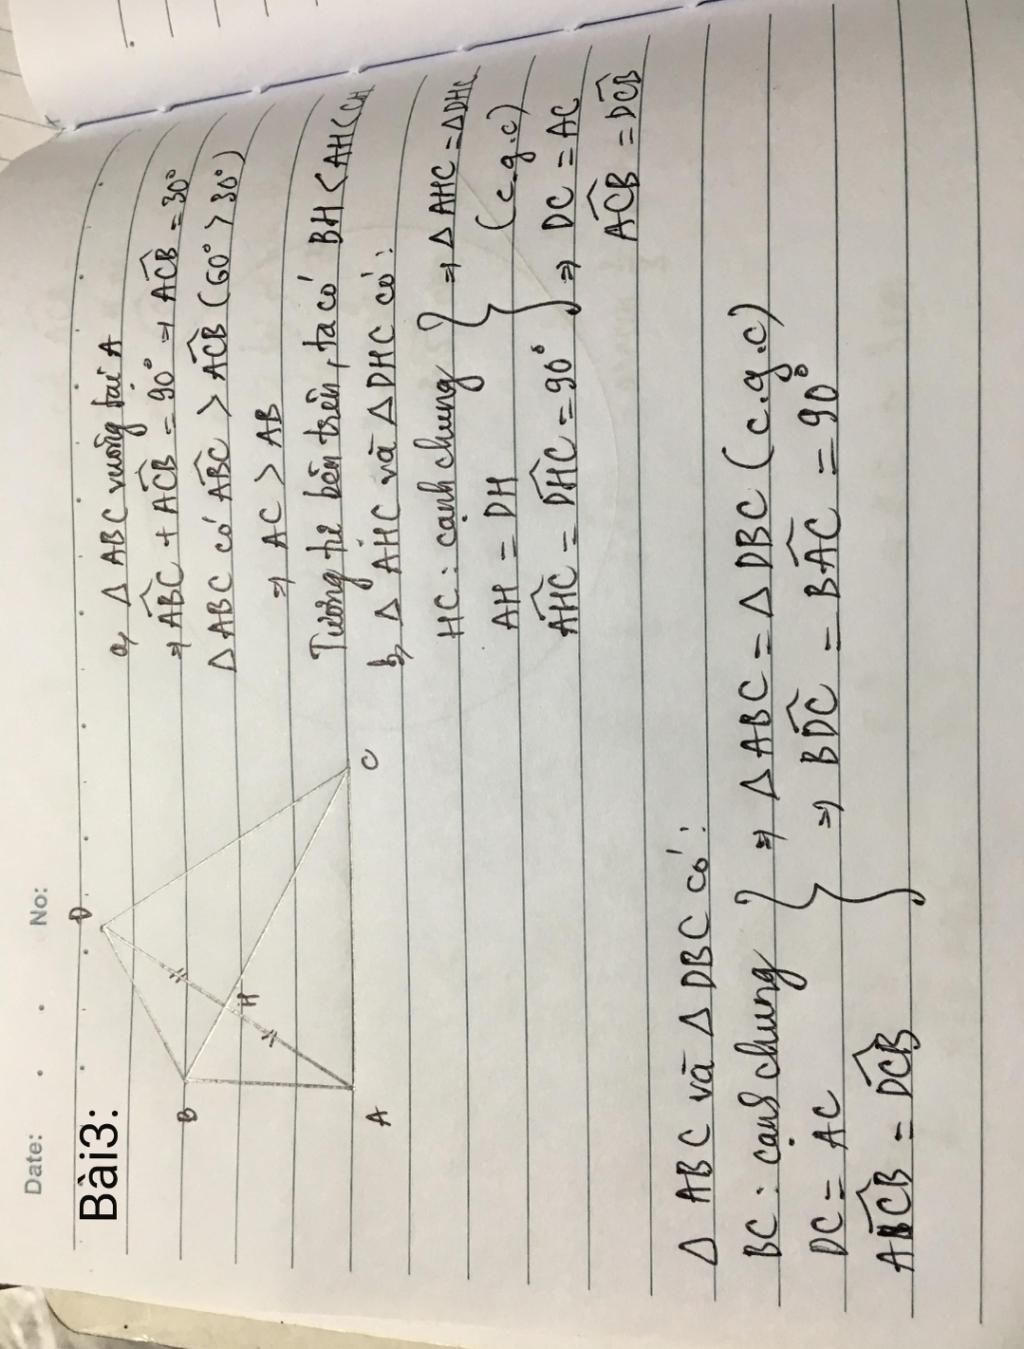 Date: No:
Bài3:
D
B
H
A
C
a, Δ ABC vuông tại A
⇒ ABC^ + ACB^ = 90° ⇒ ACB^ = 30°
Δ ABC có ABC^ > ACB^ (60° > 30°)
⇒ AC > AB
Tương tự bên trên, ta có BH < AH < CH
b, Δ AHC và Δ DHC có:
HC : cạnh chung
AH = DH
AHC^ = DHC^ = 90°
} ⇒ Δ AHC = Δ DHC
(c.g.c)
⇒ DC = AC
ACB^ = DCB^
Δ ABC và Δ DBC có:
BC : cạnh chung
DC = AC
ACB^ = DCB^
} ⇒ Δ ABC = Δ DBC (c.g.c)
⇒ BDC^ = BAC^ = 90°